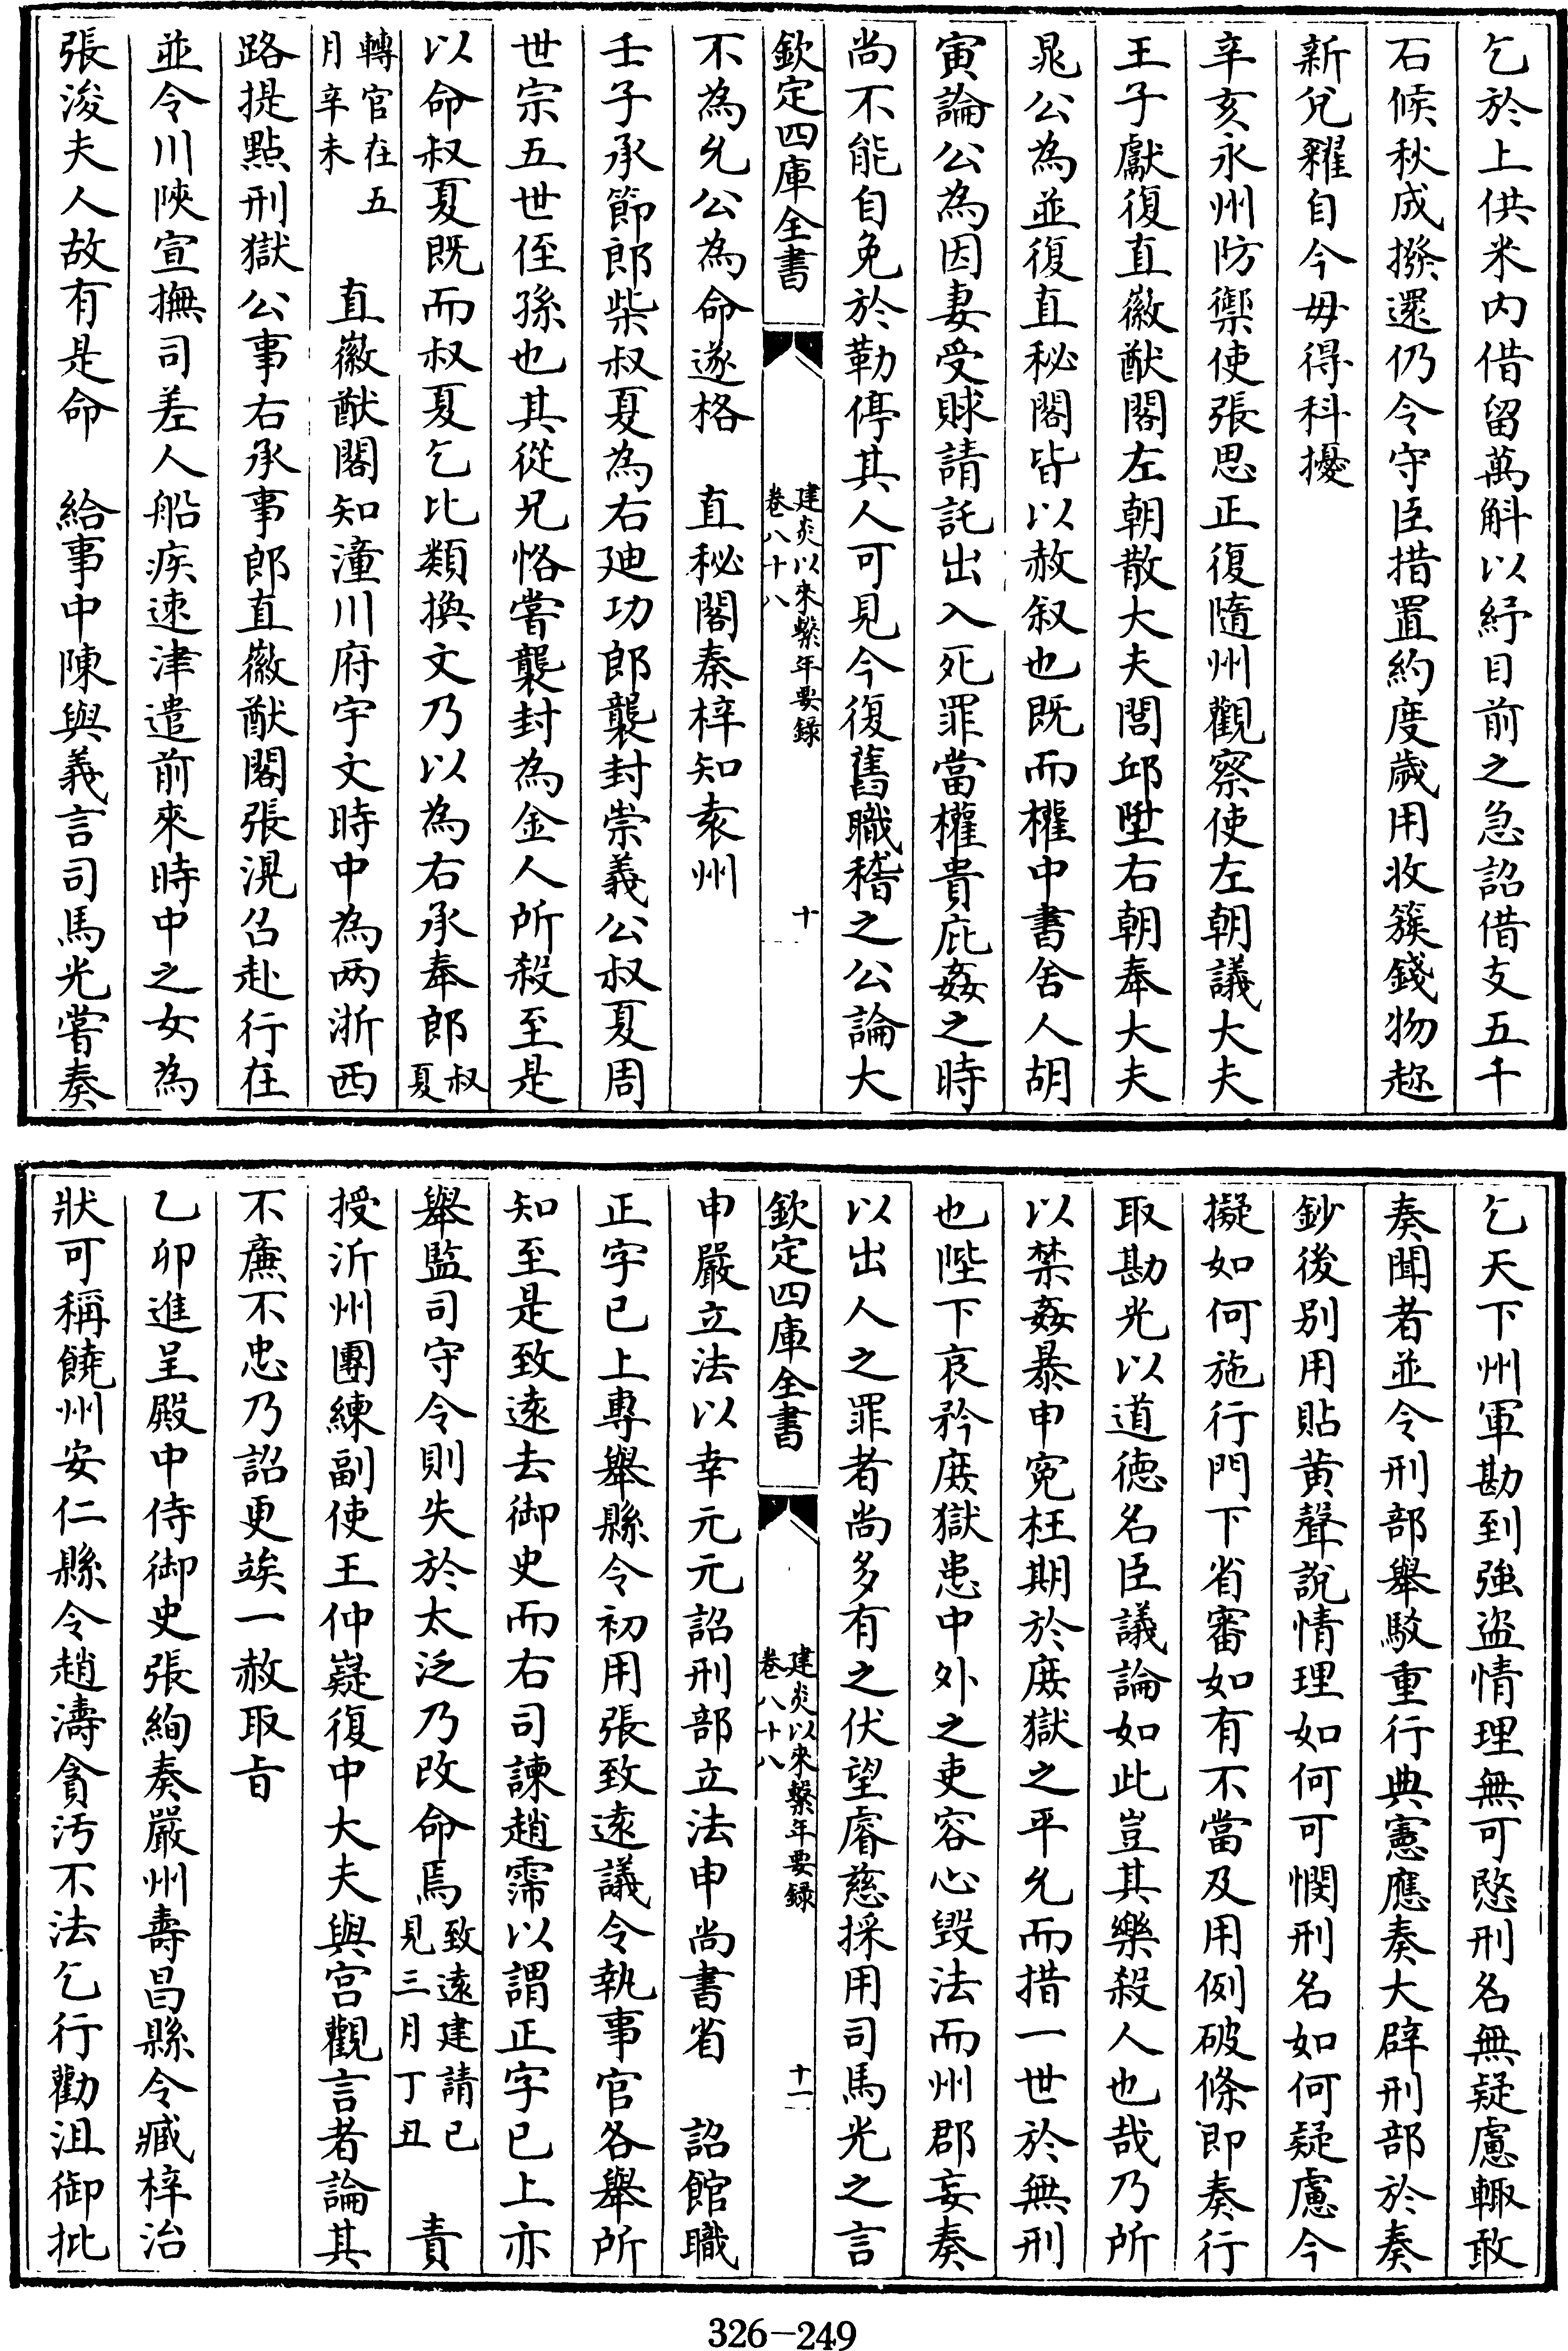 乞於上供米内借留萬斛以紓目前之急詔借支五千
石候秋成撥還仍令守臣措置約度歲用收簇錢物趂
新兊糴自今毋得科擾
辛亥永州防禦使張思正復隨州觀察使左朝議大夫
王子獻復直徽猷閣左朝散大夫閭邱陞右朝奉大夫
晁公為並復直秘閣皆以赦叙也既而權中書舍人胡
寅論公為因妻受賕請託出入死罪當權貴庇姦之時
尚不能自免於勒停其人可見今復舊職稽之公論大
欽定四庫全書
建炎以來繫年要録
卷八十八
十
不為允公為命遂格　直秘閣秦梓知袁州
壬子承節郎柴叔夏為右廸功郎襲封崇義公叔夏周
世宗五世侄孫也其從兄恪嘗襲封為金人所殺至是
以命叔夏既而叔夏乞比類換文乃以為右承奉郎叔夏
轉官在五月辛未　直徽猷閣知潼川府宇文時中為两浙西
路提點刑獄公事右承事郎直徽猷閣張滉召赴行在
並令川陝宣撫司差人船疾速津遣前來時中之女為
張浚夫人故有是命　給事中陳與義言司馬光嘗奏
乞天下州軍勘到強盜情理無可愍刑名無疑慮輙敢
奏聞者並令刑部舉駮重行典憲應奏大辟刑部於奏
鈔後别用貼黄聲說情理如何可憫刑名如何疑慮今
擬如何施行門下省審如有不當及用例破條即奏行
取勘光以道徳名臣議論如此豈其樂殺人也哉乃所
以禁姦暴申寃枉期於庶獄之平允而措一世於無刑
也陛下哀矜庶獄患中外之吏容心毀法而州郡妄奏
以出人之罪者尚多有之伏望睿慈採用司馬光之言
欽定四庫全書
建炎以來繫年要録
卷八十八
十一
申嚴立法以幸元元詔刑部立法申尚書省　詔館職
正字已上專舉縣令初用張致遠議令執事官各舉所
知至是致遠去御史而右司諫趙霈以謂正字已上亦
舉監司守令則失於太泛乃改命焉致遠建請已見三月丁丑　責
授沂州團練副使王仲嶷復中大夫與宫觀言者論其
不亷不忠乃詔更竢一赦取旨
乙卯進呈殿中侍御史張絢奏嚴州壽昌縣令臧梓治
狀可稱饒州安仁縣令趙濤貪汚不法乞行勸沮御批
326—249